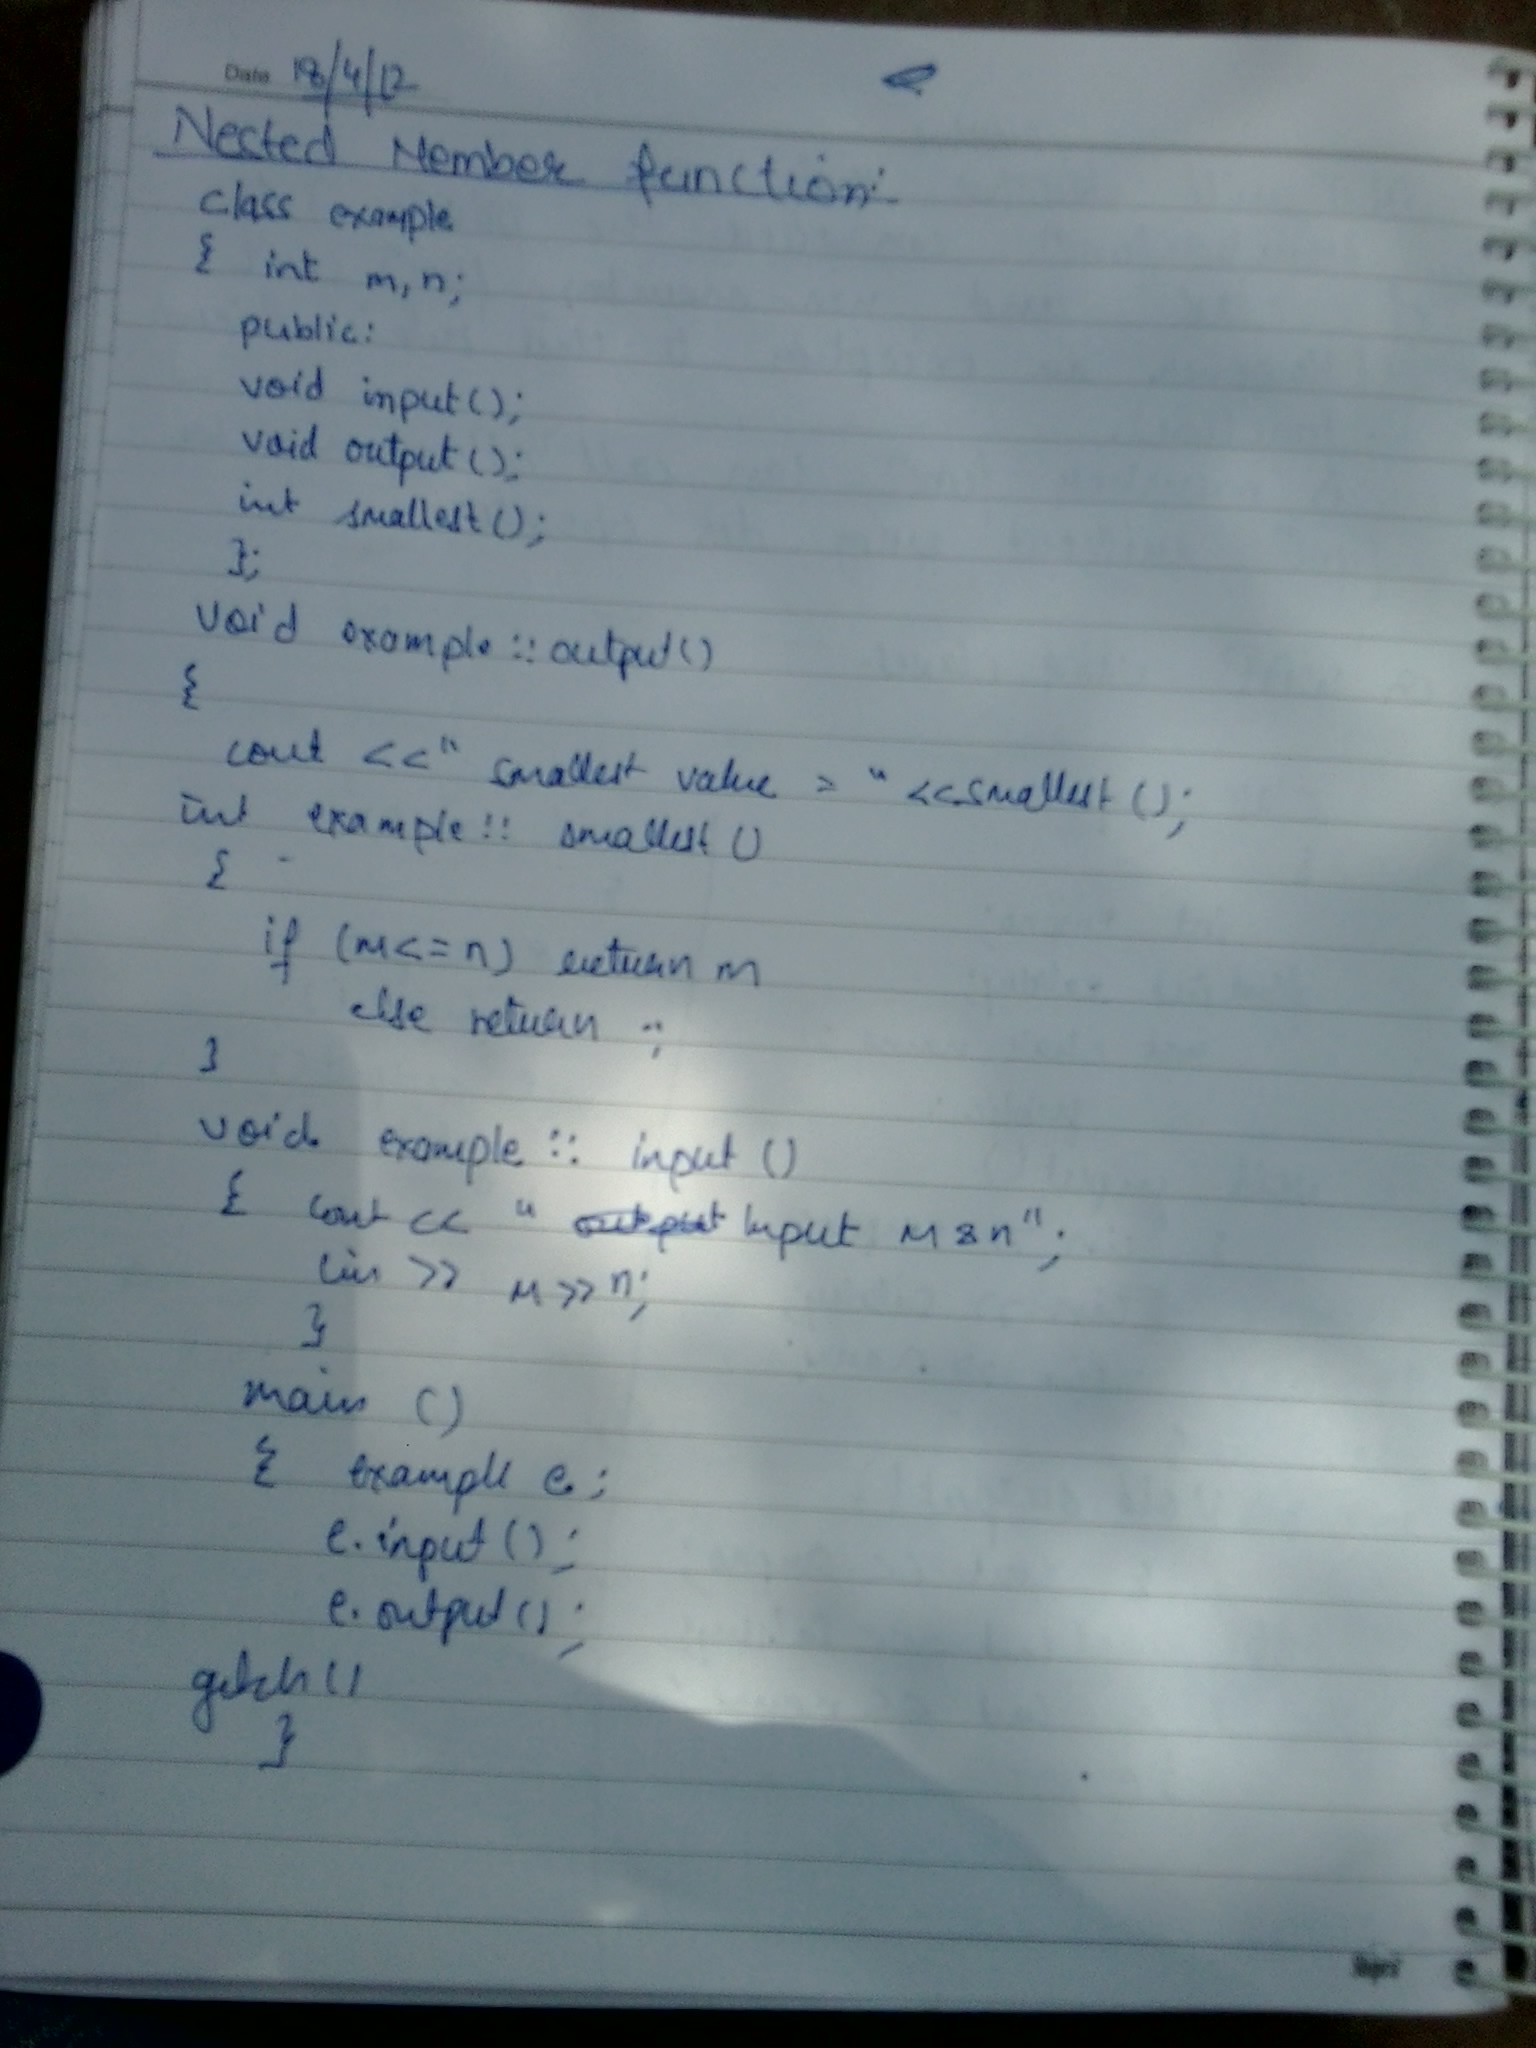 Date 18/4/12
Nected Member function:
class example
{ int m,n;
public:
void input();
void output();
int smallest();
};
void example::output()
{
cout <<" smallest value = " <<smallest();
int example:: smallest()
{
if (m<=n) return m
else return ;
}
void example:: input()
{ cout << " output Input m & n";
cin >> m >> n;
}
main ()
{ example e;
e.input();
e.output();
getch()
}